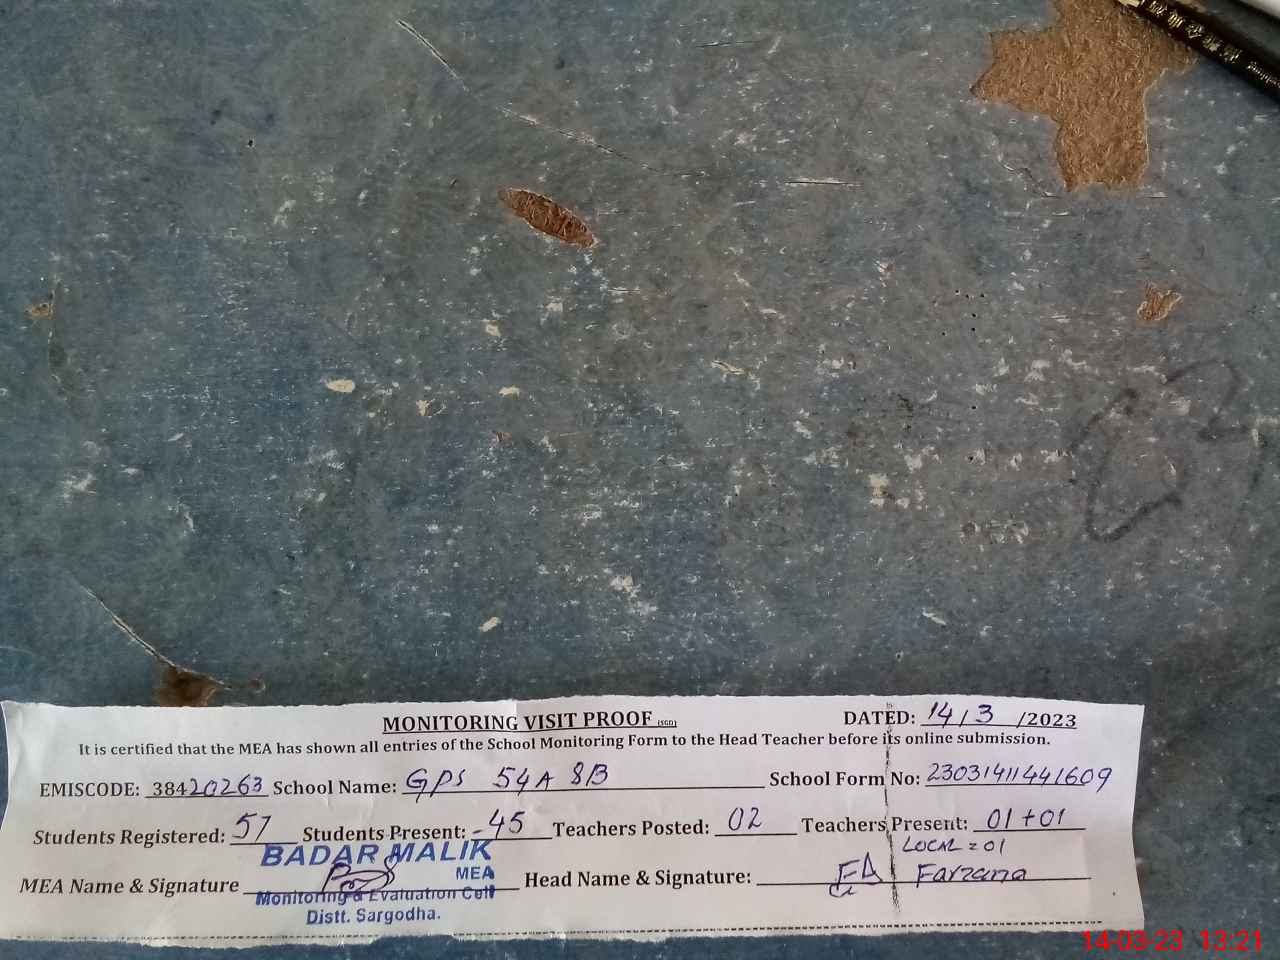 MONITORING VISIT PROOF (SGD) DATED: 14/3/2023
It is certified that the MEA has shown all entries of the School Monitoring Form to the Head Teacher before its online submission.
EMISCODE: 38420263 School Name: GPS 54A SB School Form No: 23031411441609
Students Registered: 57 Students Present: 45 Teachers Posted: 02 Teachers Present: 01+01
LOCAL = 01
BADAR MALIK
MEA
MEA Name & Signature Head Name & Signature: Farzana
Monitoring & Evaluation Cell
Distt. Sargodha.
14-03-23 13:21